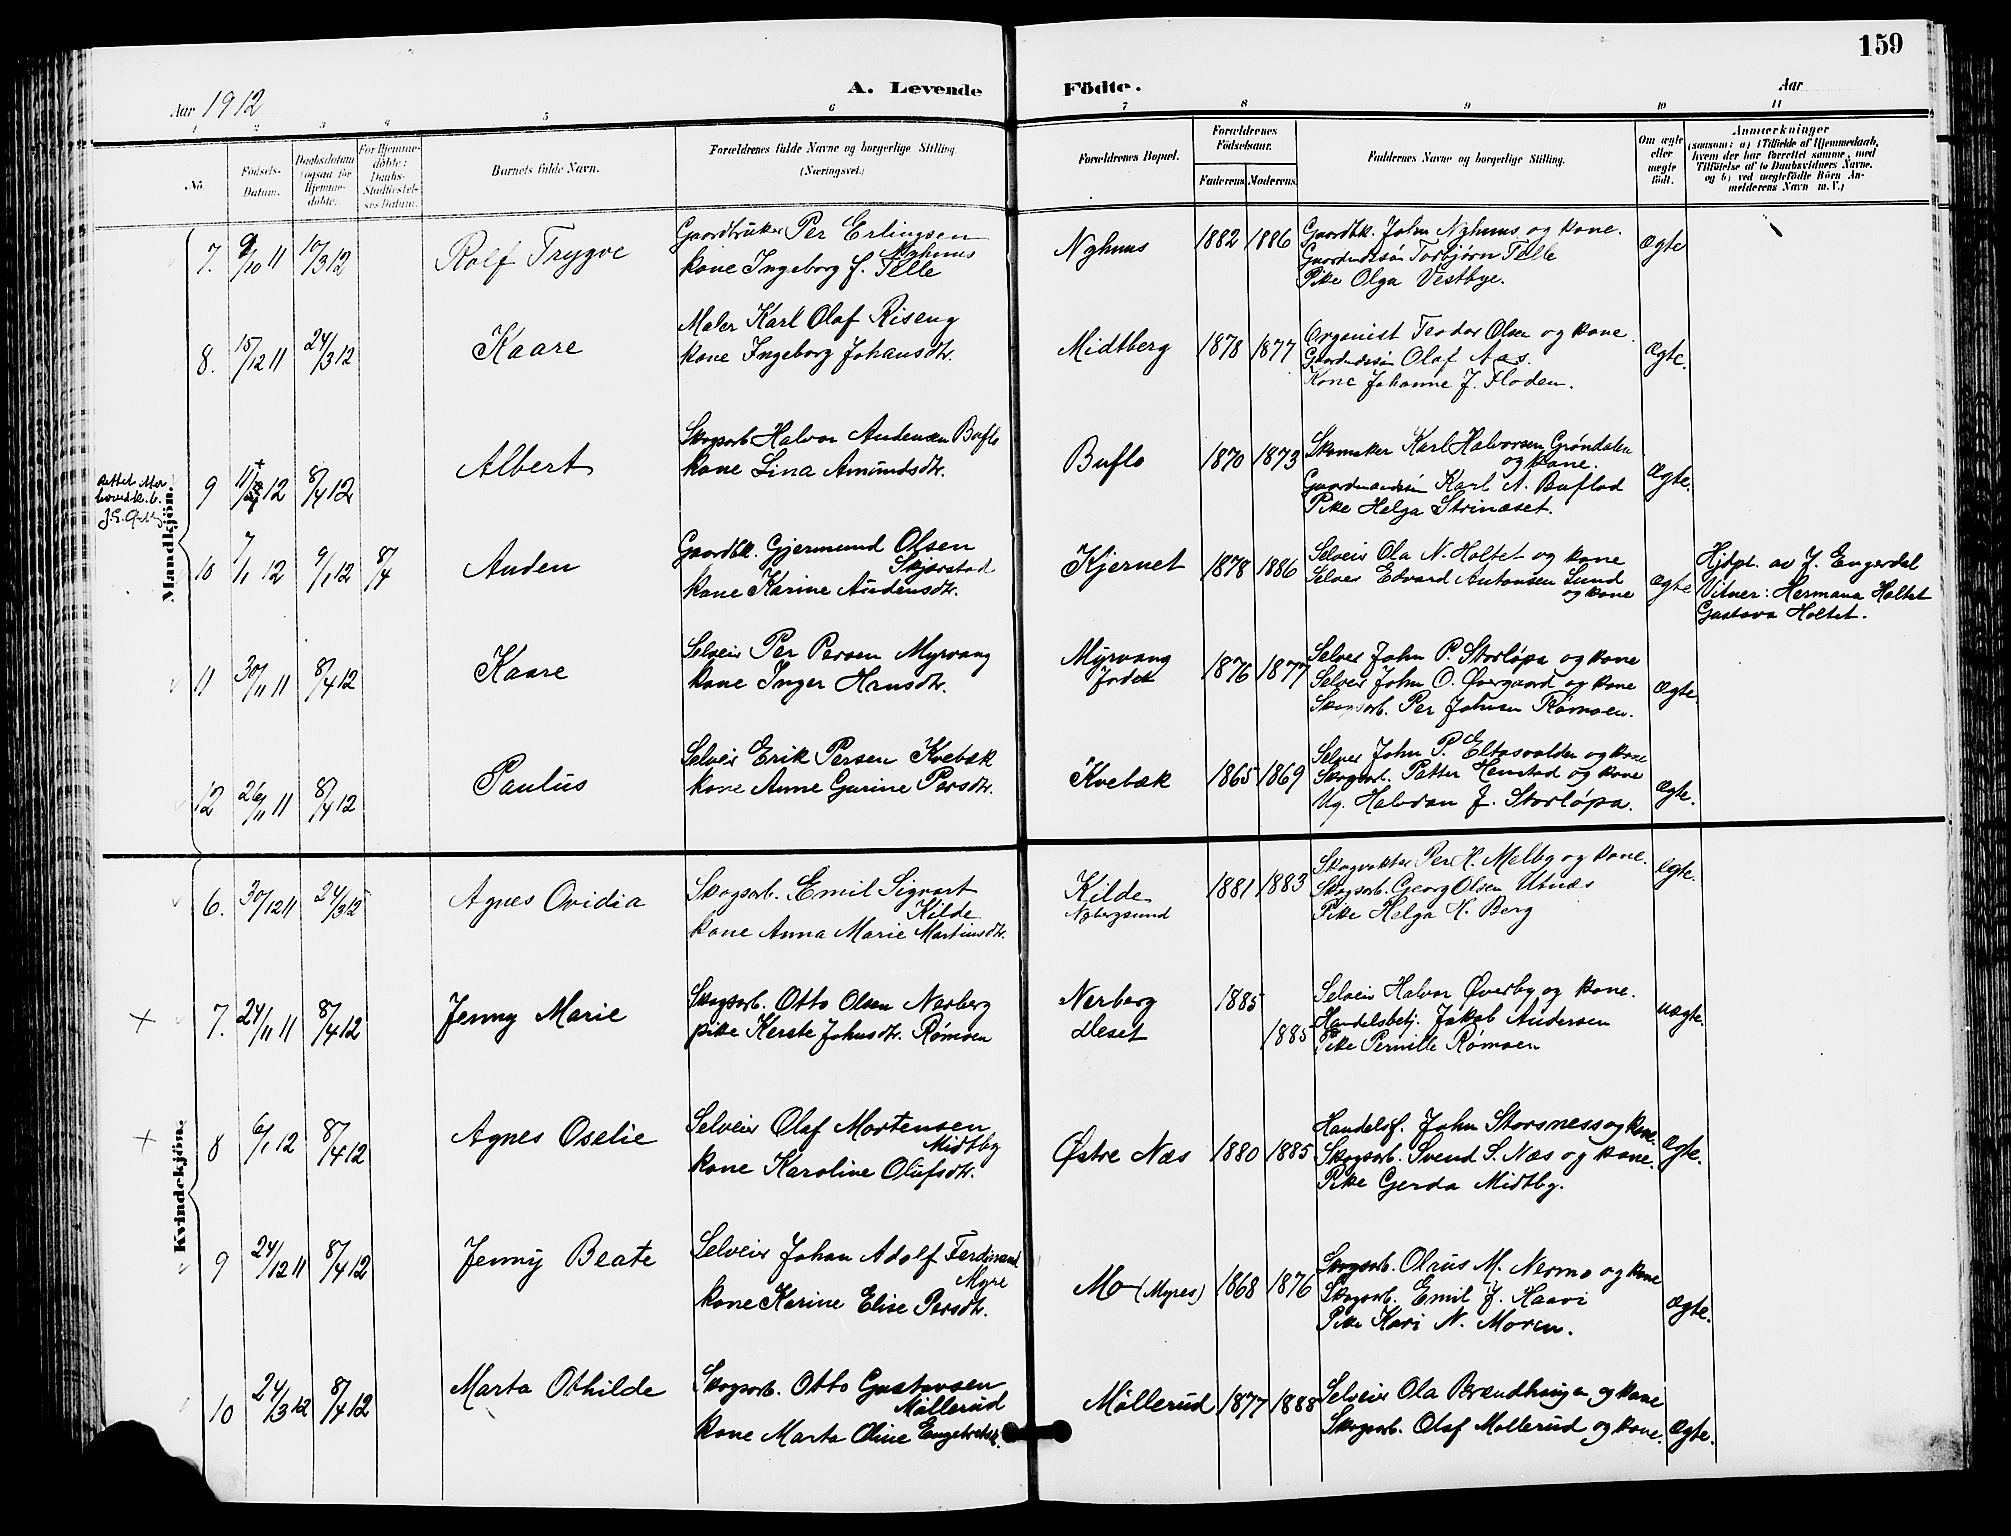 159
Aar 1912
A. Levende Födte.
Aar
1 2 3 4 5 6 7 8 9 10 11
No
Födsels-Datum.
Daabsdatum (ogsaa for Hjemme-döbte).
For Hjemme-döbte: Daabs-Stadfæstel-ses Datum.
Barnets fulde Navn.
Forældrenes fulde Navne og borgerlige Stilling (Næringsvei.)
Forældrenes Bopæl.
Forældrenes Födselsaar.
Faderens. Moderens.
Faddernes Navne og borgerlige Stilling.
Om ægte eller uægte födt.
Anmærkninger
(saasom: a) i Tilfælde af Hjemmedaab, hvem der har forrettet samme, med Tilföielse af to Daabsvidners Navne, og b) ved uægtefödte Börn Anmelderens Navn m. V.)
Mandkjön.
7. 9/10 11 10/3 12 Rolf Trygve Gaardbruker Per Erlingsen Nyhuus Nyhuus 1882 1886 Gaardbk. John Nyhuus og kone. ægte
kone Ingeborg f. Telle Gaardmdsøn Torbjørn Telle
Pike Olga Vestbye.
8. 15/12 11 24/3 12 Kaare Maler Karl Olaf Riseng Midtberg 1878 1877 Organist Teodor Olsen og kone. ægte.
kone Ingeborg Johansdtr. Gaardmdsøn Olaf Aas.
Kone Johanne J. Floden.
9 8/4 12 Albert Skogsarb. Halvor Audensen Buflo Buflo 1870 1873 Skomaker Karl Halvorsen Grøndalen og kone. ægte.
kone Lina Amundsdtr. Gaardmandssøn Karl A. Buflod
Pike Helga Strinæset.
10 7/1 12 9/1 12 8/4 Auden Gaardbk. Gjermund Olsen Skjærstad Kjernet 1878 1886 Selveier Ola N. Holtet og kone ægte Hjdpt. av J. Engerdal
kone Karine Audensdtr. Selveier Edvard Antonsen Lund og kone Vitner: Hermana Holtet
Gustava Holtet.
11 30/11 11 8/4 12 Kaare Selveier Per Persen Myrvang Myrvang Jordet 1876 1877 Selveier John P. Storløpa og kone ægte.
kone Inger Hansdtr. Selveier John O. Øvergaard og kone
Skogsarb. Per Johnsen Rømoen.
12 26/11 11 8/4 12 Paulus Selveier Erik Persen Kvebæk Kvebæk 1865 1869 Selveier John P. Eltasvolden og kone ægte.
kone Anne Gurine Persdtr. Skogsarb. Petter Hemstad og kone
Ug. Halvdan J. Storløpa.
Kvindekjön.
6. 30/12 11 24/3 12 Agnes Ovidia Skogsarb. Emil Sigvart Kilde Kilde Nybergsund 1881 1883 Skogvokter Per H. Melby og kone. egte.
kone Anna Marie Martinusdtr. Skogsarb. Georg Olsen Utnæs
Pike Helga H. Berg
7. 24/11 11 8/4 12 Jenny Marie Skogsarb. Otto Olsen Nerberg Nerberg 1885 Selveier Halvor Øverby og kone. uægte.
pike Kerste Johnsdtr. Rømoen Deset 1885 Handelsbetj. Jakob Andersen
Pike Pernille Rømoen
8 6/1 12 8/4 12 Agnes Oselie Selveier Olaf Mortensen Midtby Østre Næs 1880 1885 Handelsf. John Storsness og kone. ægte.
kone Karoline Olufsdtr. Skogsarb. Svend S. Næs og kone.
Pike Gerda Midtby.
9 24/12 11 8/4 12 Jenny Beate Selveier Johan Adolf Ferdinand Myre Mo (Myres) 1868 1876 Skogsarb. Olaus M. Nermo og kone ægte.
kone Karine Elise Persdtr. Skogsarb. Emil J. Haavi
Pike Kari N. Moren.
10 24/3 12 8/4 12 Marta Othilde Skogsarb. Otto Gustavsen Møllerud Møllerud 1877 1888 Selveier Ola Brændhaugen og kone ægte.
kone Marta Oline Engebretsdtr. Skogsarb. Olaf Møllerud og kone.